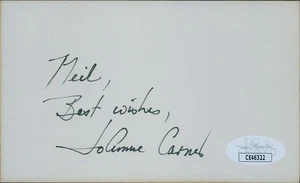 Neil,
Best wishes,
JoAnne Carner
CE46322